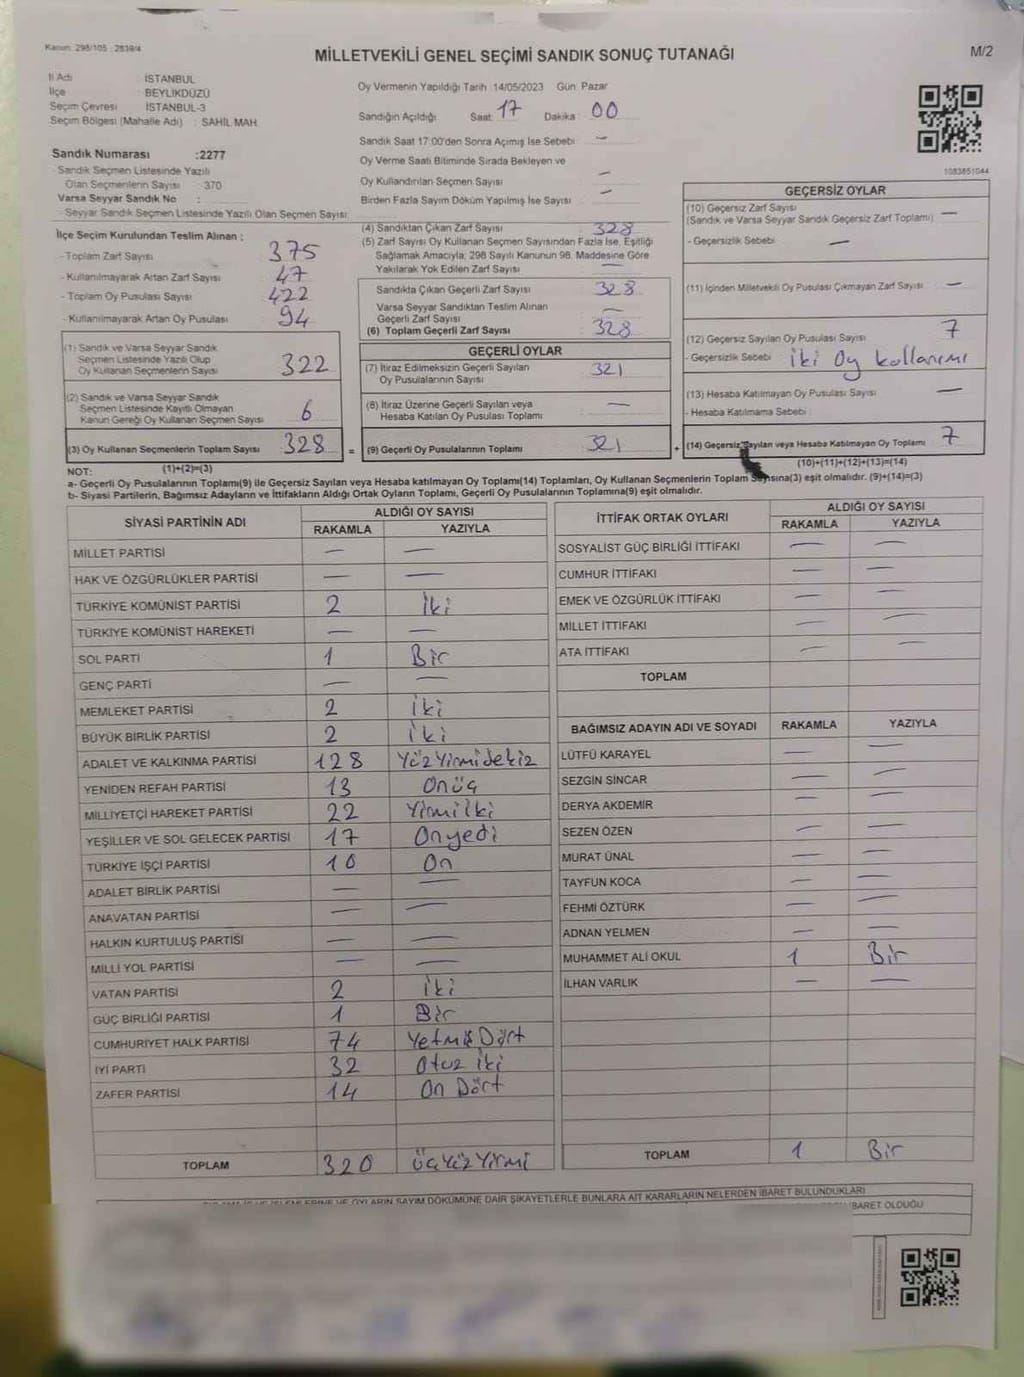 Kanun: 298/105 : 2839/4
MİLLETVEKİLİ GENEL SEÇİMİ SANDIK SONUÇ TUTANAĞI
M/2
İl Adı : İSTANBUL
İlçe : BEYLİKDÜZÜ
Seçim Çevresi : İSTANBUL-3
Seçim Bölgesi (Mahalle Adı) : SAHİL MAH.
Sandık Numarası :2277
- Sandık Seçmen Listesinde Yazılı
Olan Seçmenlerin Sayısı : 370
Varsa Seyyar Sandık No :
- Seyyar Sandık Seçmen Listesinde Yazılı Olan Seçmen Sayısı:
Oy Vermenin Yapıldığı Tarih :14/05/2023 Gün: Pazar
Sandığın Açıldığı Saat: 17 Dakika : 00
Sandık Saat 17:00'den Sonra Açılmış İse Sebebi : —
Oy Verme Saati Bitiminde Sırada Bekleyen ve
Oy Kullandırılan Seçmen Sayısı : —
Birden Fazla Sayım Döküm Yapılmış İse Sayısı : —
1083851044
İlçe Seçim Kurulundan Teslim Alınan :
- Toplam Zarf Sayısı : 375
- Kullanılmayarak Artan Zarf Sayısı : 47
- Toplam Oy Pusulası Sayısı : 422
- Kullanılmayarak Artan Oy Pusulası : 94
(1) Sandık ve Varsa Seyyar Sandık
Seçmen Listesinde Yazılı Olup
Oy Kullanan Seçmenlerin Sayısı : 322
(2) Sandık ve Varsa Seyyar Sandık
Seçmen Listesinde Kayıtlı Olmayan
Kanun Gereği Oy Kullanan Seçmen Sayısı : 6
(3) Oy Kullanan Seçmenlerin Toplam Sayısı : 328
(1)+(2)=(3)
(4) Sandıktan Çıkan Zarf Sayısı : 328
(5) Zarf Sayısı Oy Kullanan Seçmen Sayısından Fazla İse, Eşitliği
Sağlamak Amacıyla, 298 Sayılı Kanunun 98. Maddesine Göre
Yakılarak Yok Edilen Zarf Sayısı : —
Sandıkta Çıkan Geçerli Zarf Sayısı : 328
Varsa Seyyar Sandıktan Teslim Alınan
Geçerli Zarf Sayısı : —
(6) Toplam Geçerli Zarf Sayısı : 328
GEÇERLİ OYLAR
(7) İtiraz Edilmeksizin Geçerli Sayılan
Oy Pusulalarının Sayısı : 321
(8) İtiraz Üzerine Geçerli Sayılan veya
Hesaba Katılan Oy Pusulası Toplamı : —
= (9) Geçerli Oy Pusulalarının Toplamı : 321 +
GEÇERSİZ OYLAR
(10) Geçersiz Zarf Sayısı
(Sandık ve Varsa Seyyar Sandık Geçersiz Zarf Toplamı) : —
- Geçersizlik Sebebi : —
(11) İçinden Milletvekili Oy Pusulası Çıkmayan Zarf Sayısı : —
(12) Geçersiz Sayılan Oy Pusulası Sayısı : 7
- Geçersizlik Sebebi : iki oy kullanımı
(13) Hesaba Katılmayan Oy Pusulası Sayısı : —
- Hesaba Katılmama Sebebi :
(14) Geçersiz Sayılan veya Hesaba Katılmayan Oy Toplamı : 7
(10)+(11)+(12)+(13)=(14)
NOT:
a- Geçerli Oy Pusulalarının Toplamı(9) ile Geçersiz Sayılan veya Hesaba katılmayan Oy Toplamı(14) Toplamları, Oy Kullanan Seçmenlerin Toplam Sayısına(3) eşit olmalıdır. (9)+(14)=(3)
b- Siyasi Partilerin, Bağımsız Adayların ve İttifakların Aldığı Ortak Oyların Toplamı, Geçerli Oy Pusulalarının Toplamına(9) eşit olmalıdır.
SİYASİ PARTİNİN ADI ALDIĞI OY SAYISI
RAKAMLA YAZIYLA
MİLLET PARTİSİ — —
HAK VE ÖZGÜRLÜKLER PARTİSİ — —
TÜRKİYE KOMÜNİST PARTİSİ 2 iki
TÜRKİYE KOMÜNİST HAREKETİ — —
SOL PARTİ 1 Bir
GENÇ PARTİ — —
MEMLEKET PARTİSİ 2 iki
BÜYÜK BİRLİK PARTİSİ 2 iki
ADALET VE KALKINMA PARTİSİ 128 Yüzyirmidekiz
YENİDEN REFAH PARTİSİ 13 Onüç
MİLLİYETÇİ HAREKET PARTİSİ 22 Yirmiiki
YEŞİLLER VE SOL GELECEK PARTİSİ 17 Onyedi
TÜRKİYE İŞÇİ PARTİSİ 10 On
ADALET BİRLİK PARTİSİ — —
ANAVATAN PARTİSİ — —
HALKIN KURTULUŞ PARTİSİ — —
MİLLİ YOL PARTİSİ — —
VATAN PARTİSİ 2 iki
GÜÇ BİRLİĞİ PARTİSİ 1 Bir
CUMHURİYET HALK PARTİSİ 74 Yetmiş Dört
İYİ PARTİ 32 Otuz iki
ZAFER PARTİSİ 14 On Dört
TOPLAM 320 üçYüzYirmi
İTTİFAK ORTAK OYLARI ALDIĞI OY SAYISI
RAKAMLA YAZIYLA
SOSYALİST GÜÇ BİRLİĞİ İTTİFAKI — —
CUMHUR İTTİFAKI — —
EMEK VE ÖZGÜRLÜK İTTİFAKI — —
MİLLET İTTİFAKI — —
ATA İTTİFAKI — —
TOPLAM
BAĞIMSIZ ADAYIN ADI VE SOYADI RAKAMLA YAZIYLA
LÜTFÜ KARAYEL — —
SEZGİN SİNCAR — —
DERYA AKDEMİR — —
SEZEN ÖZEN — —
MURAT ÜNAL — —
TAYFUN KOCA — —
FEHMİ ÖZTÜRK — —
ADNAN YELMEN — —
MUHAMMET ALİ OKUL 1 Bir
İLHAN VARLIK — —
TOPLAM 1 Bir
OYLARIN SAYIM DÖKÜMÜNE DAİR ŞİKAYETLERLE BUNLARA AİT KARARLARIN NELERDEN İBARET BULUNDUKLARI
İBARET OLDUĞU